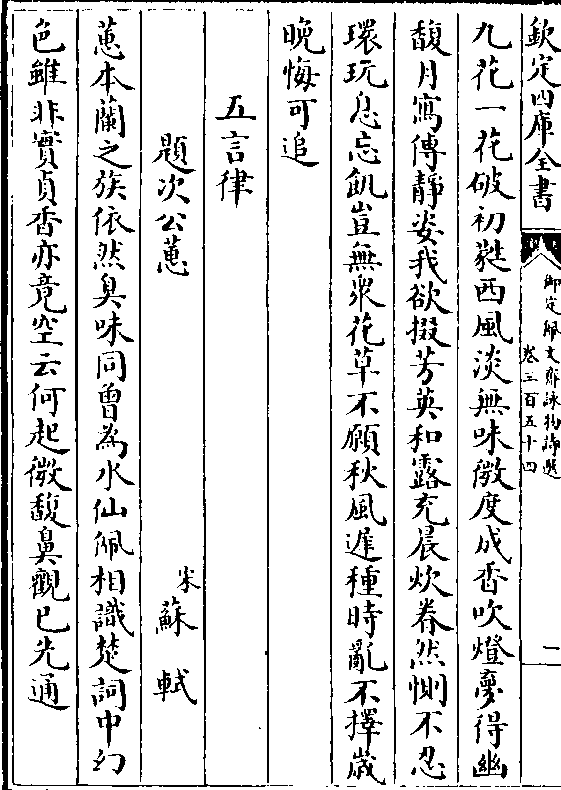 欽定四庫全書
御定佩文齋詠物詩選
卷三百五十四
二
九花一花破初蕤西風淡無味微度成香吹燈夢得幽
馥月寫傳靜姿我欲掇芳英和露充晨炊眷然惻不忍
環玩息忘飢豈無衆花草不願秋風遲種時亂不擇歲
晩悔可追
五言律
題次公蕙
宋 蘇軾
蕙本蘭之族依然臭味同曾為水仙佩相識楚詞中幻
色雖非實貞香亦竟空云何起微馥鼻觀已先通